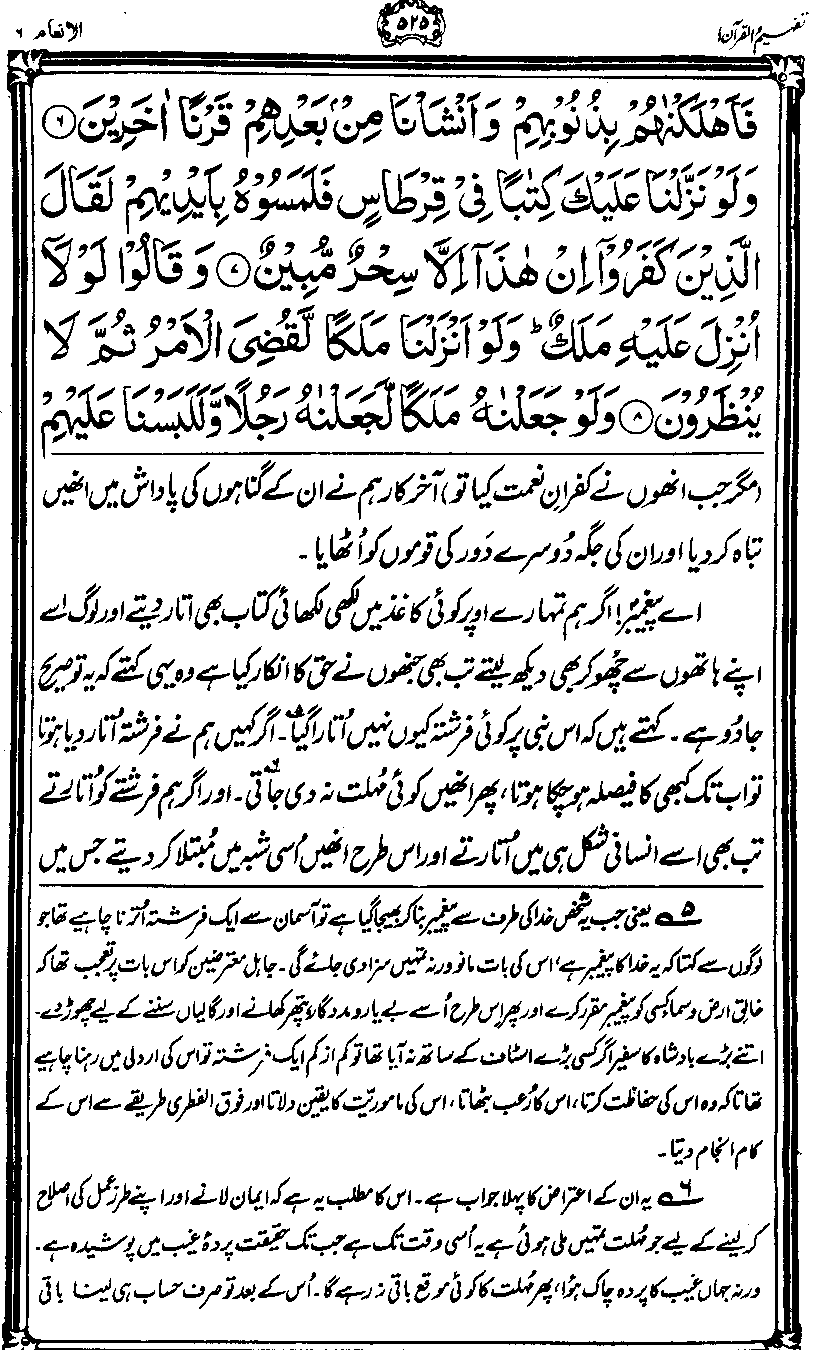 تفہیم القرآن ۱
۵۲۵
الانعام ۶
فَاَهْلَكْنٰهُمْ بِذُنُوْبِهِمْ وَاَنْشَاْنَا مِنْۢ بَعْدِهِمْ قَرْنًا اٰخَرِيْنَ ۶
وَلَوْ نَزَّلْنَا عَلَيْكَ كِتٰبًا فِيْ قِرْطَاسٍ فَلَمَسُوْهُ بِاَيْدِيْهِمْ لَقَالَ
الَّذِيْنَ كَفَرُوْٓا اِنْ هٰذَآ اِلَّا سِحْرٌ مُّبِيْنٌ ۷ وَقَالُوْا لَوْ لَآ
اُنْزِلَ عَلَيْهِ مَلَكٌ ؕ وَلَوْ اَنْزَلْنَا مَلَكًا لَّقُضِيَ الْاَمْرُ ثُمَّ لَا
يُنْظَرُوْنَ ۸ وَلَوْ جَعَلْنٰهُ مَلَكًا لَّجَعَلْنٰهُ رَجُلًا وَّلَلَبَسْنَا عَلَيْهِمْ
(مگر جب انھوں نے کفرانِ نعمت کیا تو) آخر کار ہم نے ان کے گناہوں کی پاداش میں انھیں
تباہ کر دیا اور ان کی جگہ دُوسرے دَور کی قوموں کو اُٹھایا ۔
اے پیغمبرؐ! اگر ہم تمہارے اوپر کوئی کاغذ میں لکھی لکھائی کتاب بھی اتار دیتے اور لوگ اسے
اپنے ہاتھوں سے چُھو کر بھی دیکھ لیتے تب بھی جنھوں نے حق کا انکار کیا ہے وہ یہی کہتے کہ یہ تو صریح
جادُو ہے ۔ کہتے ہیں کہ اس نبی پر کوئی فرشتہ کیوں نہیں اُتارا گیا۵۔ اگر کہیں ہم نے فرشتہ اُتار دیا ہوتا
تو اب تک کبھی کا فیصلہ ہو چکا ہوتا، پھر انھیں کوئی مُہلت نہ دی جاتی۶۔ اور اگر ہم فرشتے کو اُتارتے
تب بھی اسے انسانی شکل ہی میں اُتارتے اور اس طرح انھیں اُسی شبہ میں مُبتلا کر دیتے جس میں
۵ یعنی جب یہ شخص خدا کی طرف سے پیغمبر بنا کر بھیجا گیا ہے تو آسمان سے ایک فرشتہ اُترنا چاہیے تھا جو
لوگوں سے کہتا کہ یہ خدا کا پیغمبر ہے، اس کی بات مانو ورنہ تمہیں سزا دی جائے گی۔ جاہل معترضین کو اس بات پر تعجب تھا کہ
خالقِ ارض و سما کسی کو پیغمبر مقرر کرے اور پھر اِس طرح اُسے بے یار و مددگار پتھر کھانے اور گالیاں سننے کے لیے چھوڑ دے۔
اتنے بڑے بادشاہ کا سفیر اگر کسی بڑے اسٹاف کے ساتھ نہ آیا تھا تو کم از کم ایک فرشتہ تو اس کی اردلی میں رہنا چاہیے
تھا تاکہ وہ اس کی حفاظت کرتا، اس کا رُعب بٹھاتا، اس کی ماموریّت کا یقین دلاتا اور فوق الفطری طریقے سے اس کے
کام انجام دیتا۔
۶ یہ ان کے اعتراض کا پہلا جواب ہے۔ اس کا مطلب یہ ہے کہ ایمان لانے اور اپنے طرزِ عمل کی اصلاح
کر لینے کے لیے جو مُہلت تمہیں ملی ہوئی ہے یہ اُسی وقت تک ہے جب تک حقیقت پردۂ غیب میں پوشیدہ ہے۔
ورنہ جہاں غیب کا پردہ چاک ہُوا، پھر مُہلت کا کوئی موقع باقی نہ رہے گا۔ اُس کے بعد تو صرف حساب ہی لینا باقی